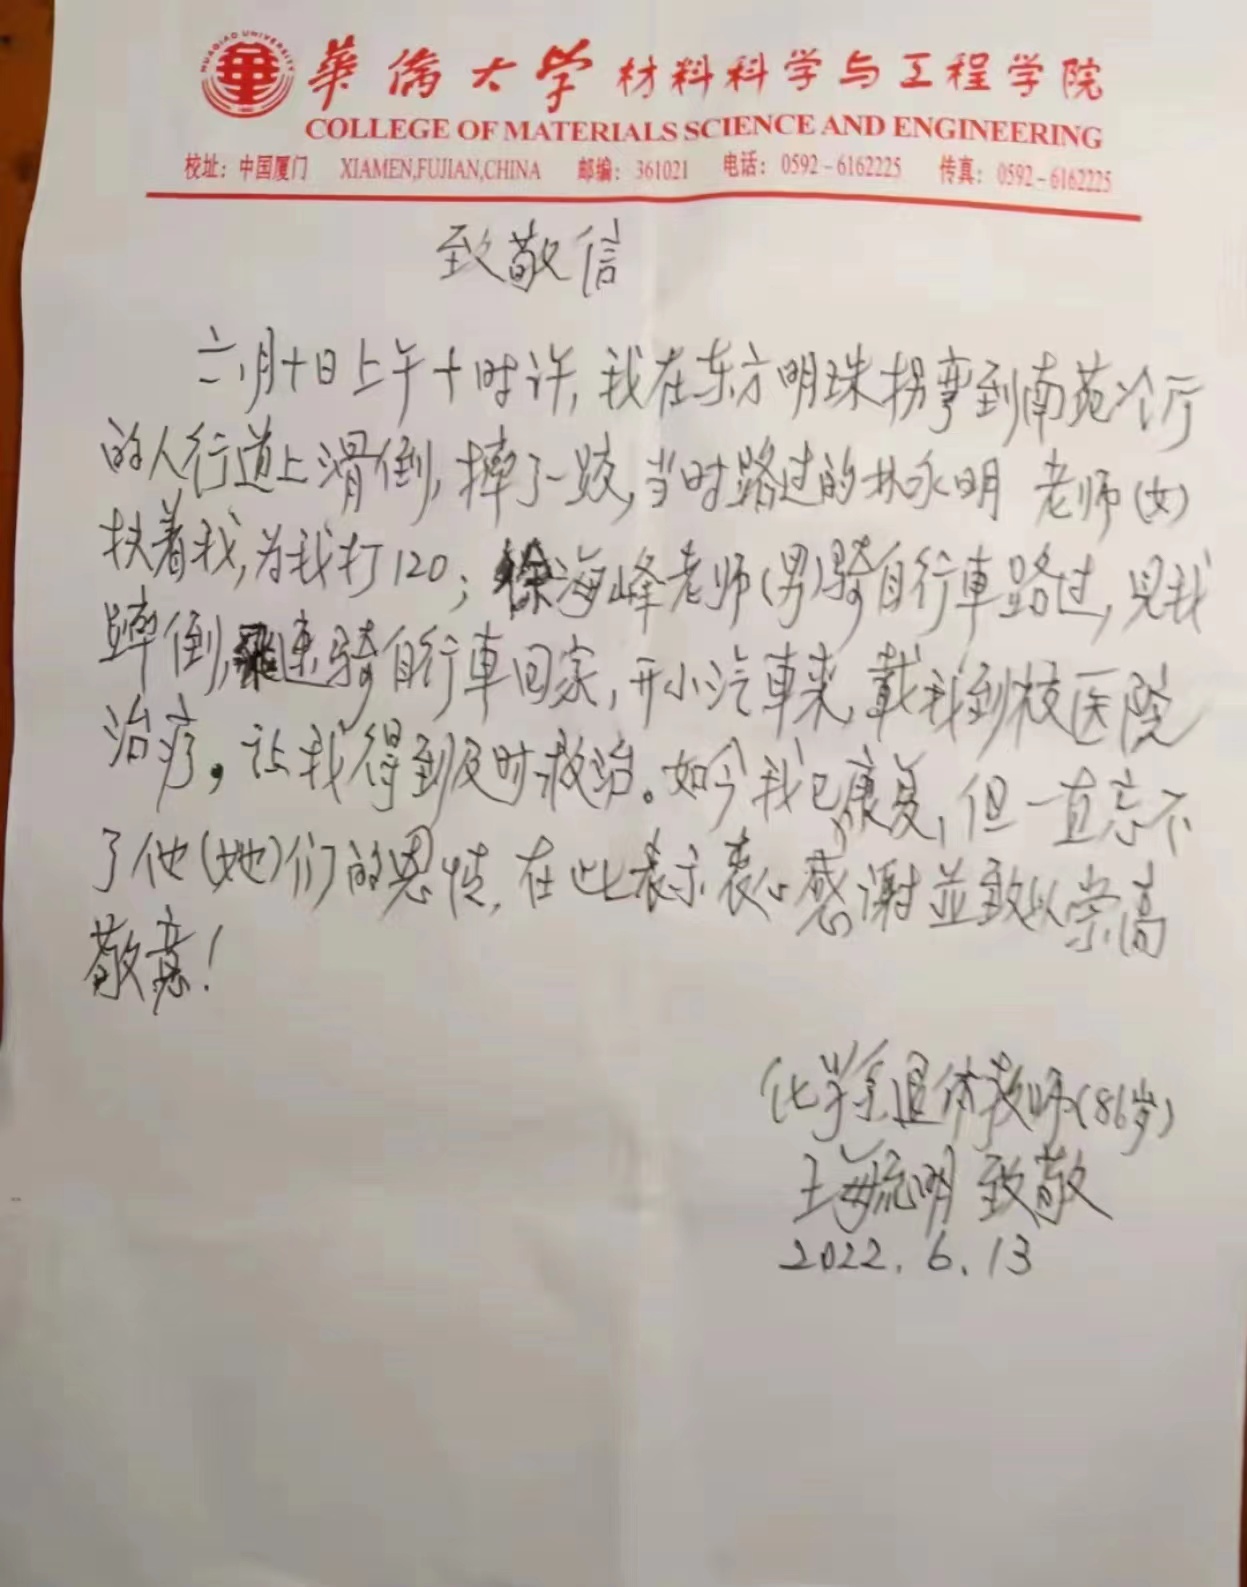 HUAQIAO UNIVERSITY
華僑大学 材料科学与工程学院
COLLEGE OF MATERIALS SCIENCE AND ENGINEERING
校址：中国厦门 XIAMEN,FUJIAN,CHINA 邮编：361021 电话：0592-6162225 传真：0592-6162225
致敬信
六月十日上午十时许,我在东方明珠拐弯到南苑冷厅
的人行道上滑倒,摔了一跤,当时路过的林永明 老师(女)
扶着我,为我打120；徐海峰老师(男)骑自行車路过,见我
摔倒,飛速骑自行車回家,开小汽車来,載我到校医院
治疗。让我得到及时救治。如今我已康复,但一直忘不
了他(她)们的恩情,在此表示衷心感谢並致以崇高
敬意!
化学系退休教师(86岁)
王海流明 致敬
2022.6.13